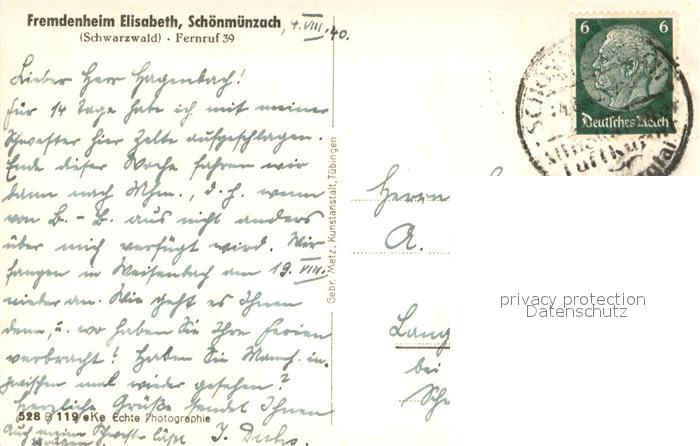 Fremdenheim Elisabeth, Schönmünzach
(Schwarzwald) · Fernruf 39
4. VIII. 40.
Lieber Herr Hagenbach!
Für 14 Tage habe ich mit meiner
Schwester hier Zelte aufgeschlagen.
Ende dieser Woche fahren wir
dann nach Mhm., d. h. wenn
von B. - B. aus nicht anders
über mich verfügt wird. Wir
fangen in Weisenbach am 19. VIII.
wieder an. Wie geht es Ihnen
denn, u. wo haben Sie Ihre Ferien
verbracht? Haben Sie Mannh. in-
zwischen mal wieder gesehen?
Herzliche Grüße sendet Ihnen
528 B 119 eKe Echte Photographie
Auch meine Schwester läßt
grüßen!
Gebr. Metz, Kunstanstalt, Tübingen
6 6
Deutsches Reich
Herrn
A.
Lang
bei
privacy protection
Datenschutz